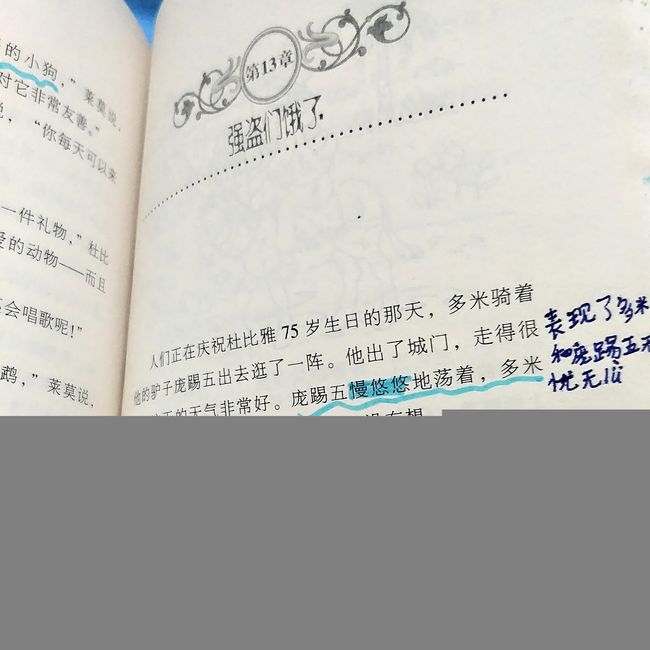 的小狗，”莱莫说，
对它非常友善。”
说，“你每天可以来
一件礼物，”杜比
爱的动物——而且
会唱歌呢！”
鹉，”莱莫说，
第13章
强盗们饿了
人们正在庆祝杜比雅75岁生日的那天，多米骑着
他的驴子庞踢五出去逛了一阵。他出了城门，走得很
天的天气非常好。庞踢五慢悠悠地荡着，多米
表现了多米
和庞踢五无
忧无lǜ